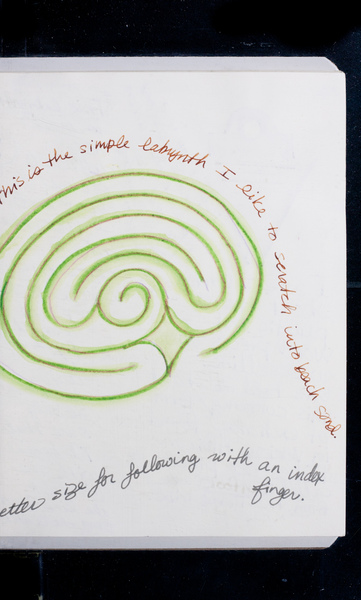 This is the simple labynth I like to scratch into beach sand.
etter size for following with an index
finger.